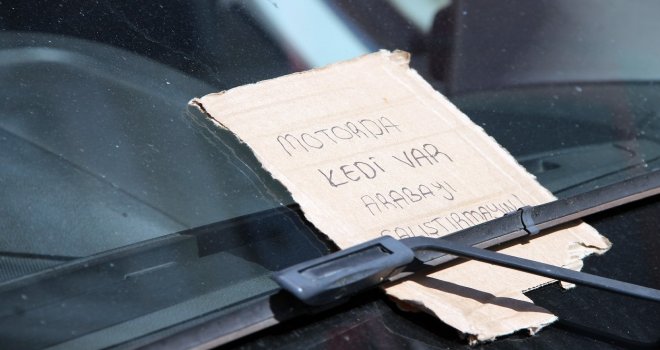 MOTORDA
KEDİ VAR
ARABAYI
ÇALIŞTIRMAYIN!